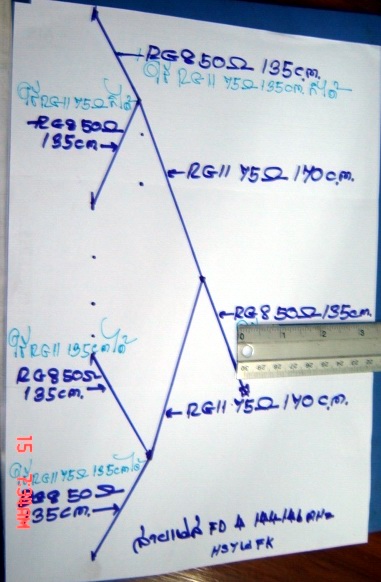 RG8 50Ω 135c.m.
ใช้ RG11 75Ω 135cm. ก็ได้
ใช้ RG11 75Ω ก็ได้
RG8 50Ω
135cm.
RG11 75Ω 170 c.m.
RG8 50Ω 135cm.
ใช้ RG11 135cm ได้
RG8 50Ω
135cm.
RG11 75Ω 170 c.m.
ใช้ RG11 75Ω 135cm ได้
RG8 50Ω
35cm.
สายเฟส FD 4 144-146 MHz